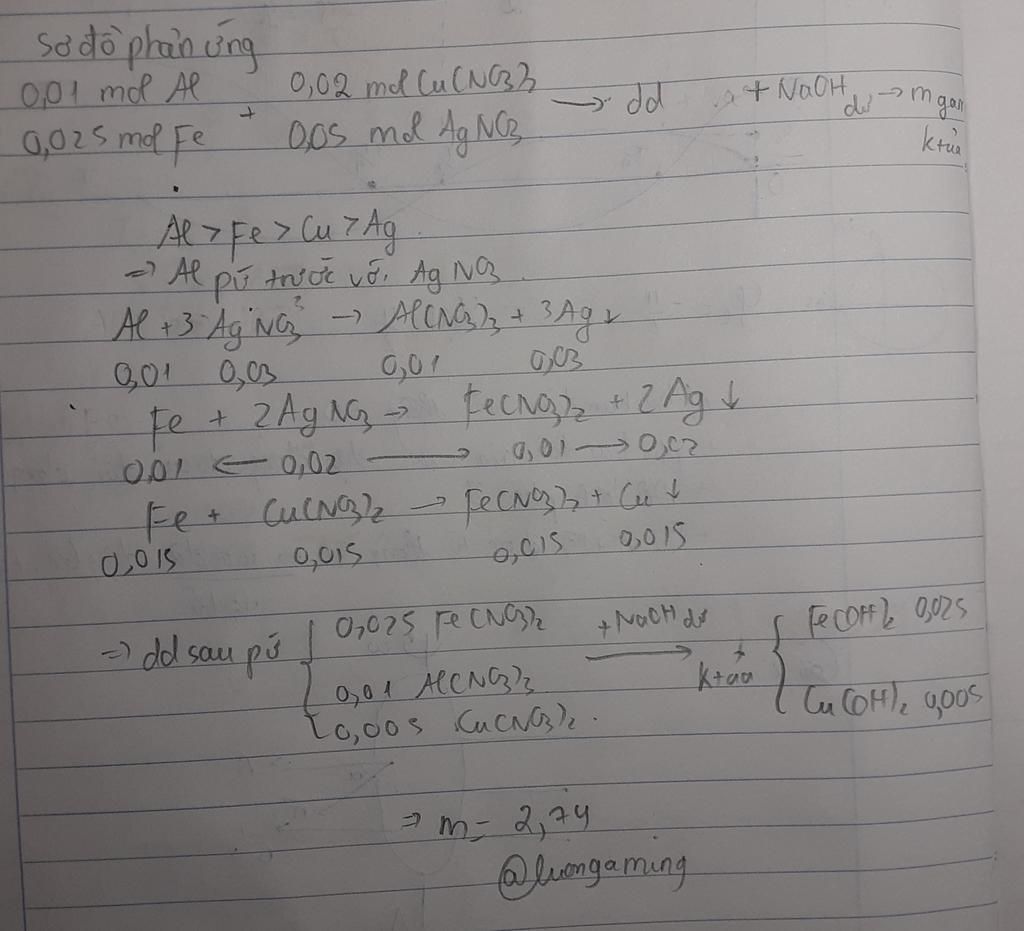 Sơ đồ phản ứng
0,01 mol Al + 0,02 mol Cu(NO3)2 → dd + NaOH dư → m gam
0,025 mol Fe 0,05 mol AgNO3 k tủa
Al > Fe > Cu > Ag
=> Al pứ trước với AgNO3
Al + 3AgNO3 → Al(NO3)3 + 3Ag↓
0,01 0,03 0,01 0,03
Fe + 2AgNO3 → Fe(NO3)2 + 2Ag↓
0,01 ← 0,02 → 0,01 → 0,02
Fe + Cu(NO3)2 → Fe(NO3)2 + Cu↓
0,015 0,015 0,015 0,015
=> dd sau pứ { 0,025 Fe(NO3)2 +NaOH dư → k tủa { Fe(OH)2 0,025
0,01 Al(NO3)3 Cu(OH)2 0,005
0,005 Cu(NO3)2.
=> m = 2,74
@luongaming